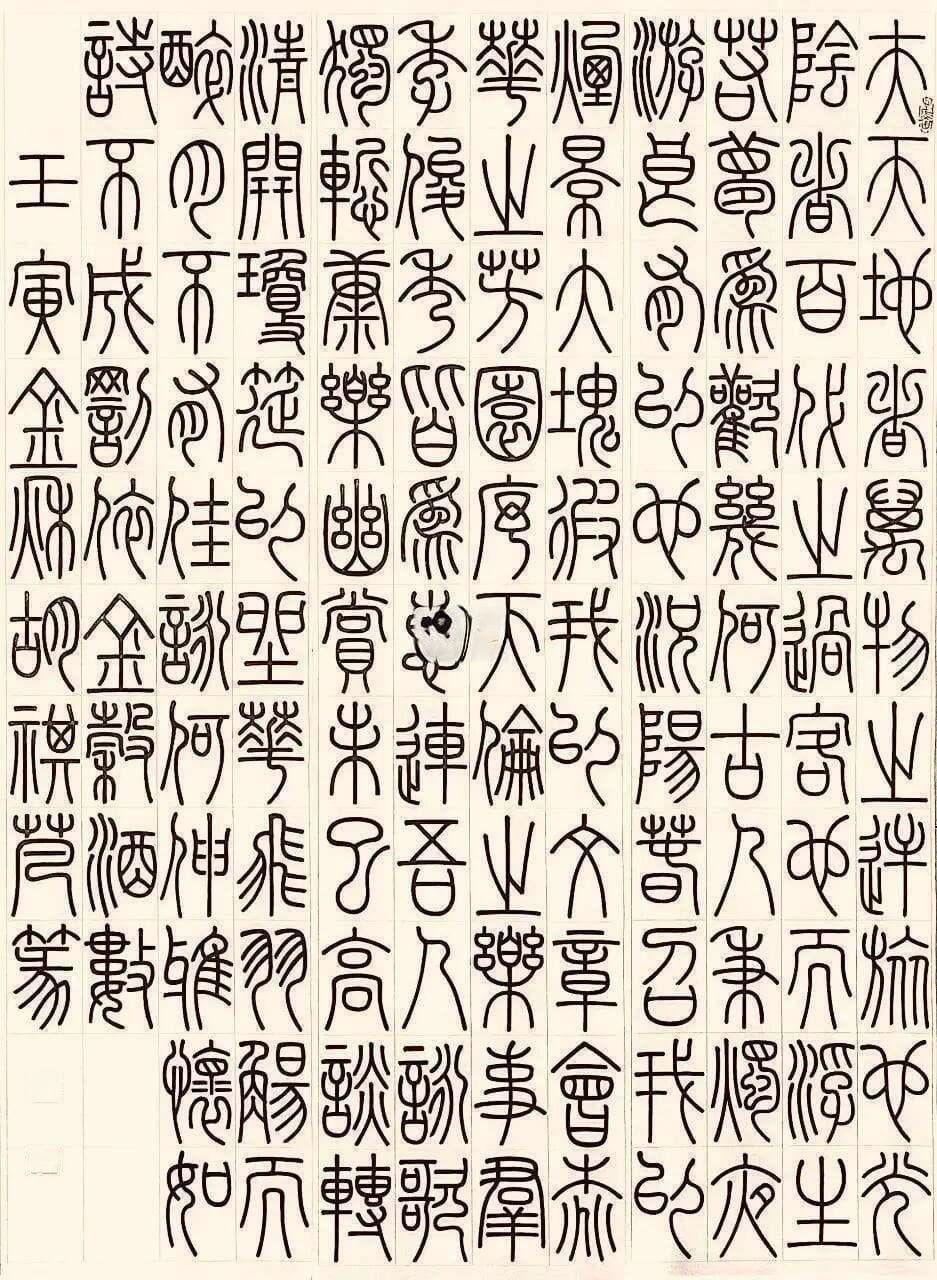 夫天地者萬物之逆旅也光
陰者百代之過客也而浮生
若夢為歡幾何古人秉燭夜
游良有以也況陽春召我以
煙景大塊假我以文章會桃
華之芳園序天倫之樂事群
季俊秀皆為惠連吾人詠歌
獨慚康樂幽賞未已高談轉
清開瓊筵以坐華飛羽觴而
醉月不有佳詠何伸雅懷如
詩不成罰依金穀酒數
壬寅金秋胡祺芃篆